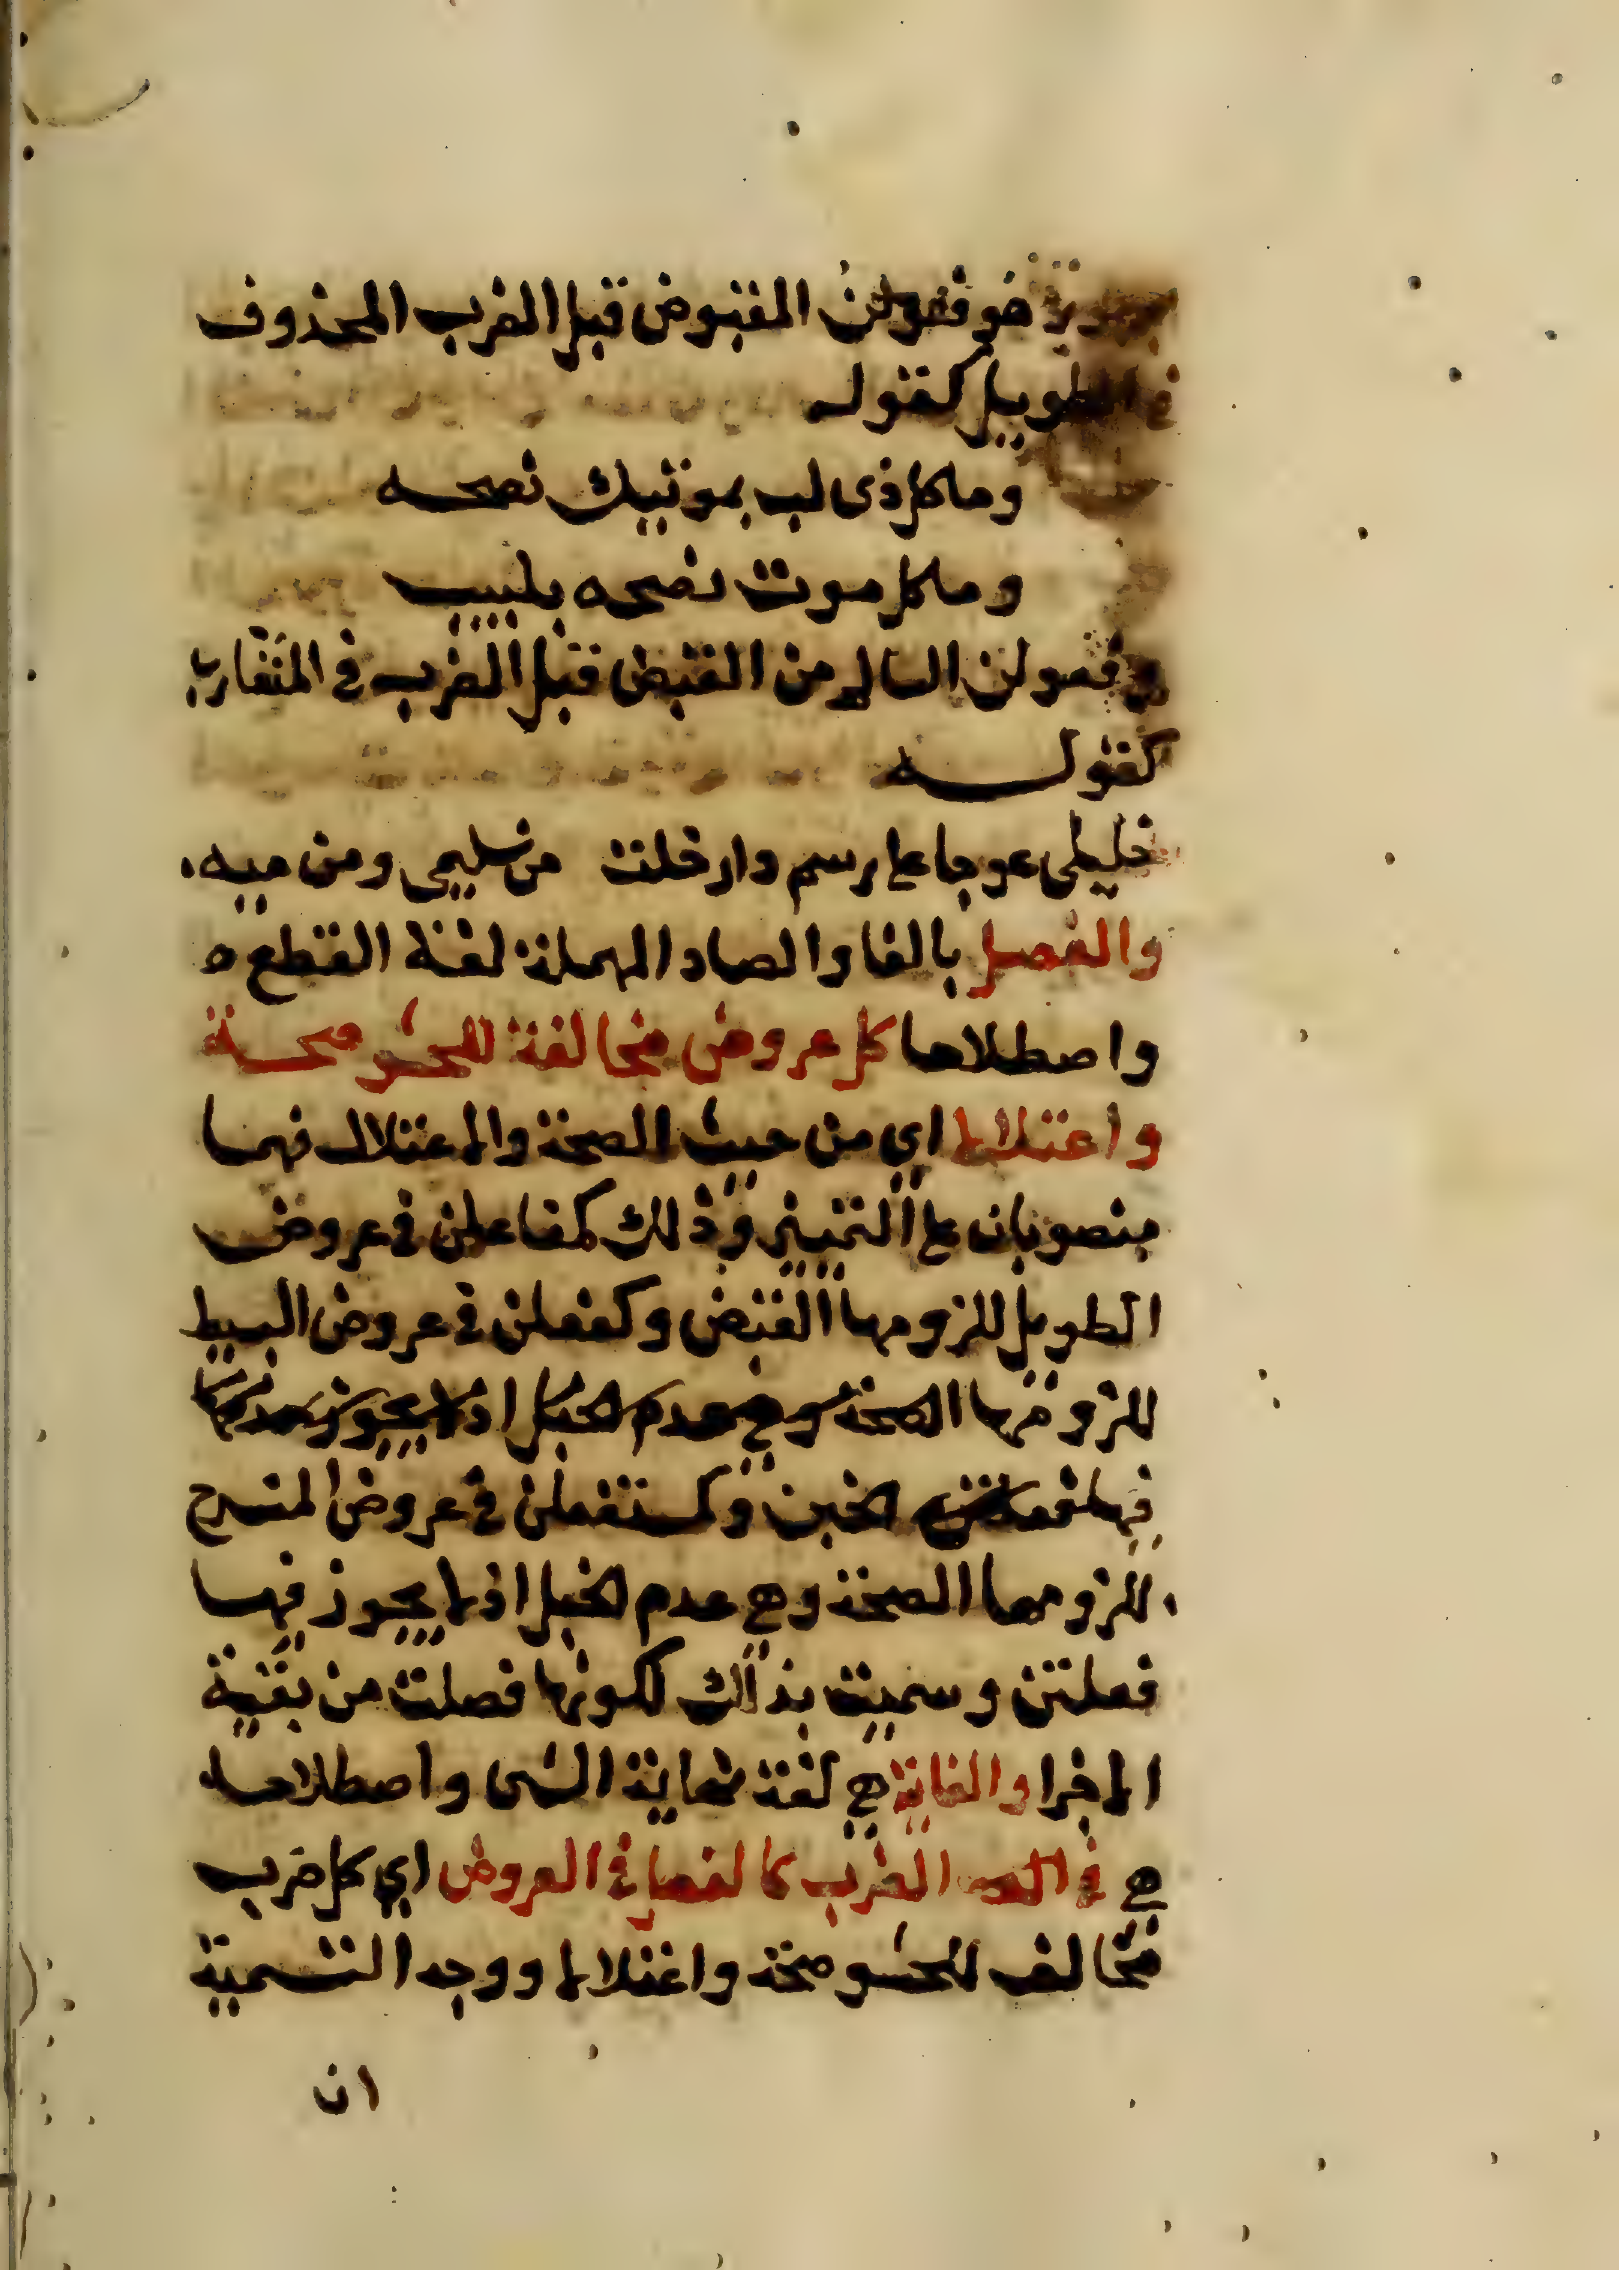 نحو فعولن المقبوض قبل الضرب المحذوف
في الطويل كقوله
وما كل ذى لب بموتيك نصحه
وما كل موت نصحه بلبيب
وفعولن السالم من القبض قبل الضرب في المتقارب
كقوله
خليلى عوجا على رسم دار خلت من سليمى ومن ميه
والفصل بالفا والصاد المهملة لغة القطع ه
واصطلاحا كل عروض مخالفة للحشو صحة
واعتلالا اي من حيث الصحة والاعتلال فهما
منصوبان على التمييز وذلك كمفاعلن في عروض
الطويل للزومها القبض وكفعلن في عروض البسيط
للزومها الصحة وهي عدم الخبل اذ لا يجوز
الخبن وكمستفعلن في عروض المنسرح
للزومها الصحة وهي عدم الخبل اذ لا يجوز فيها
فعلتن وسميت بذلك لكونها فصلت من بقية
الاجزا والغاية هي لغة نهاية الشى واصطلاحا
هي في الضرب كالفصل في العروض اي كل ضرب
مخالف للحشو صحة واعتلالا ووجه التسمية
ان